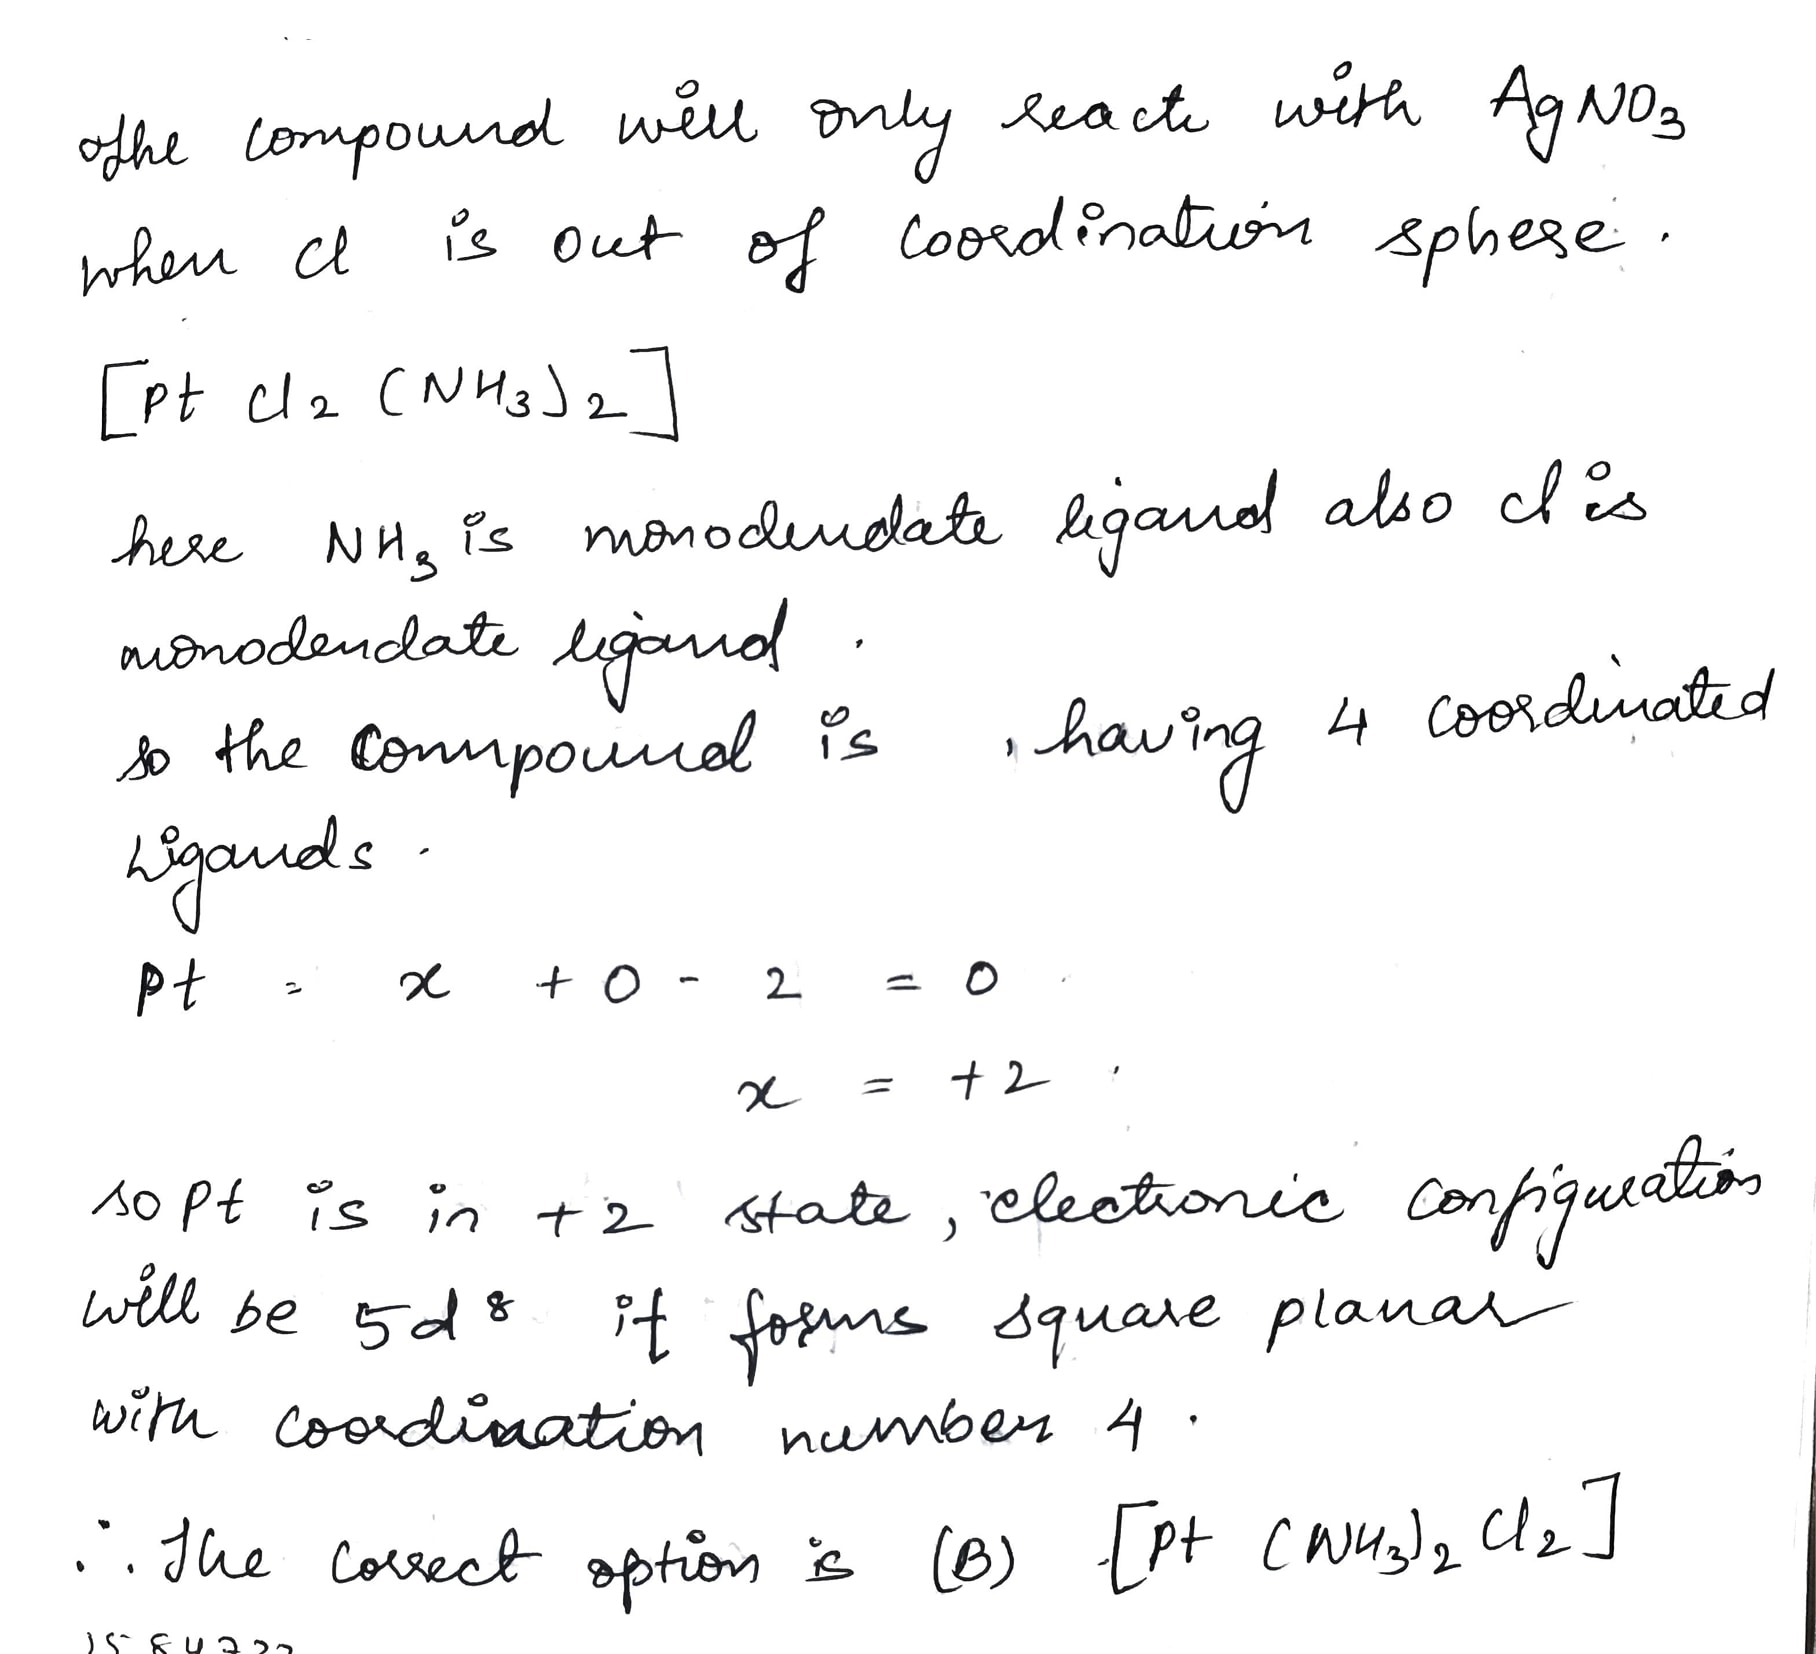 The compound will only react with AgNO3
when Cl is out of coordination sphere.
[Pt Cl2 (NH3)2]
here NH3 is monodendate ligand also Cl is
monodendate ligand.
so the compound is , having 4 coordinated
Ligands.
Pt = x + 0 - 2 = 0
x = +2
so Pt is in +2 state, electronic configuration
will be 5d8 it forms square planar
with coordination number 4.
∴ The correct option is (B) [Pt (NH3)2 Cl2]